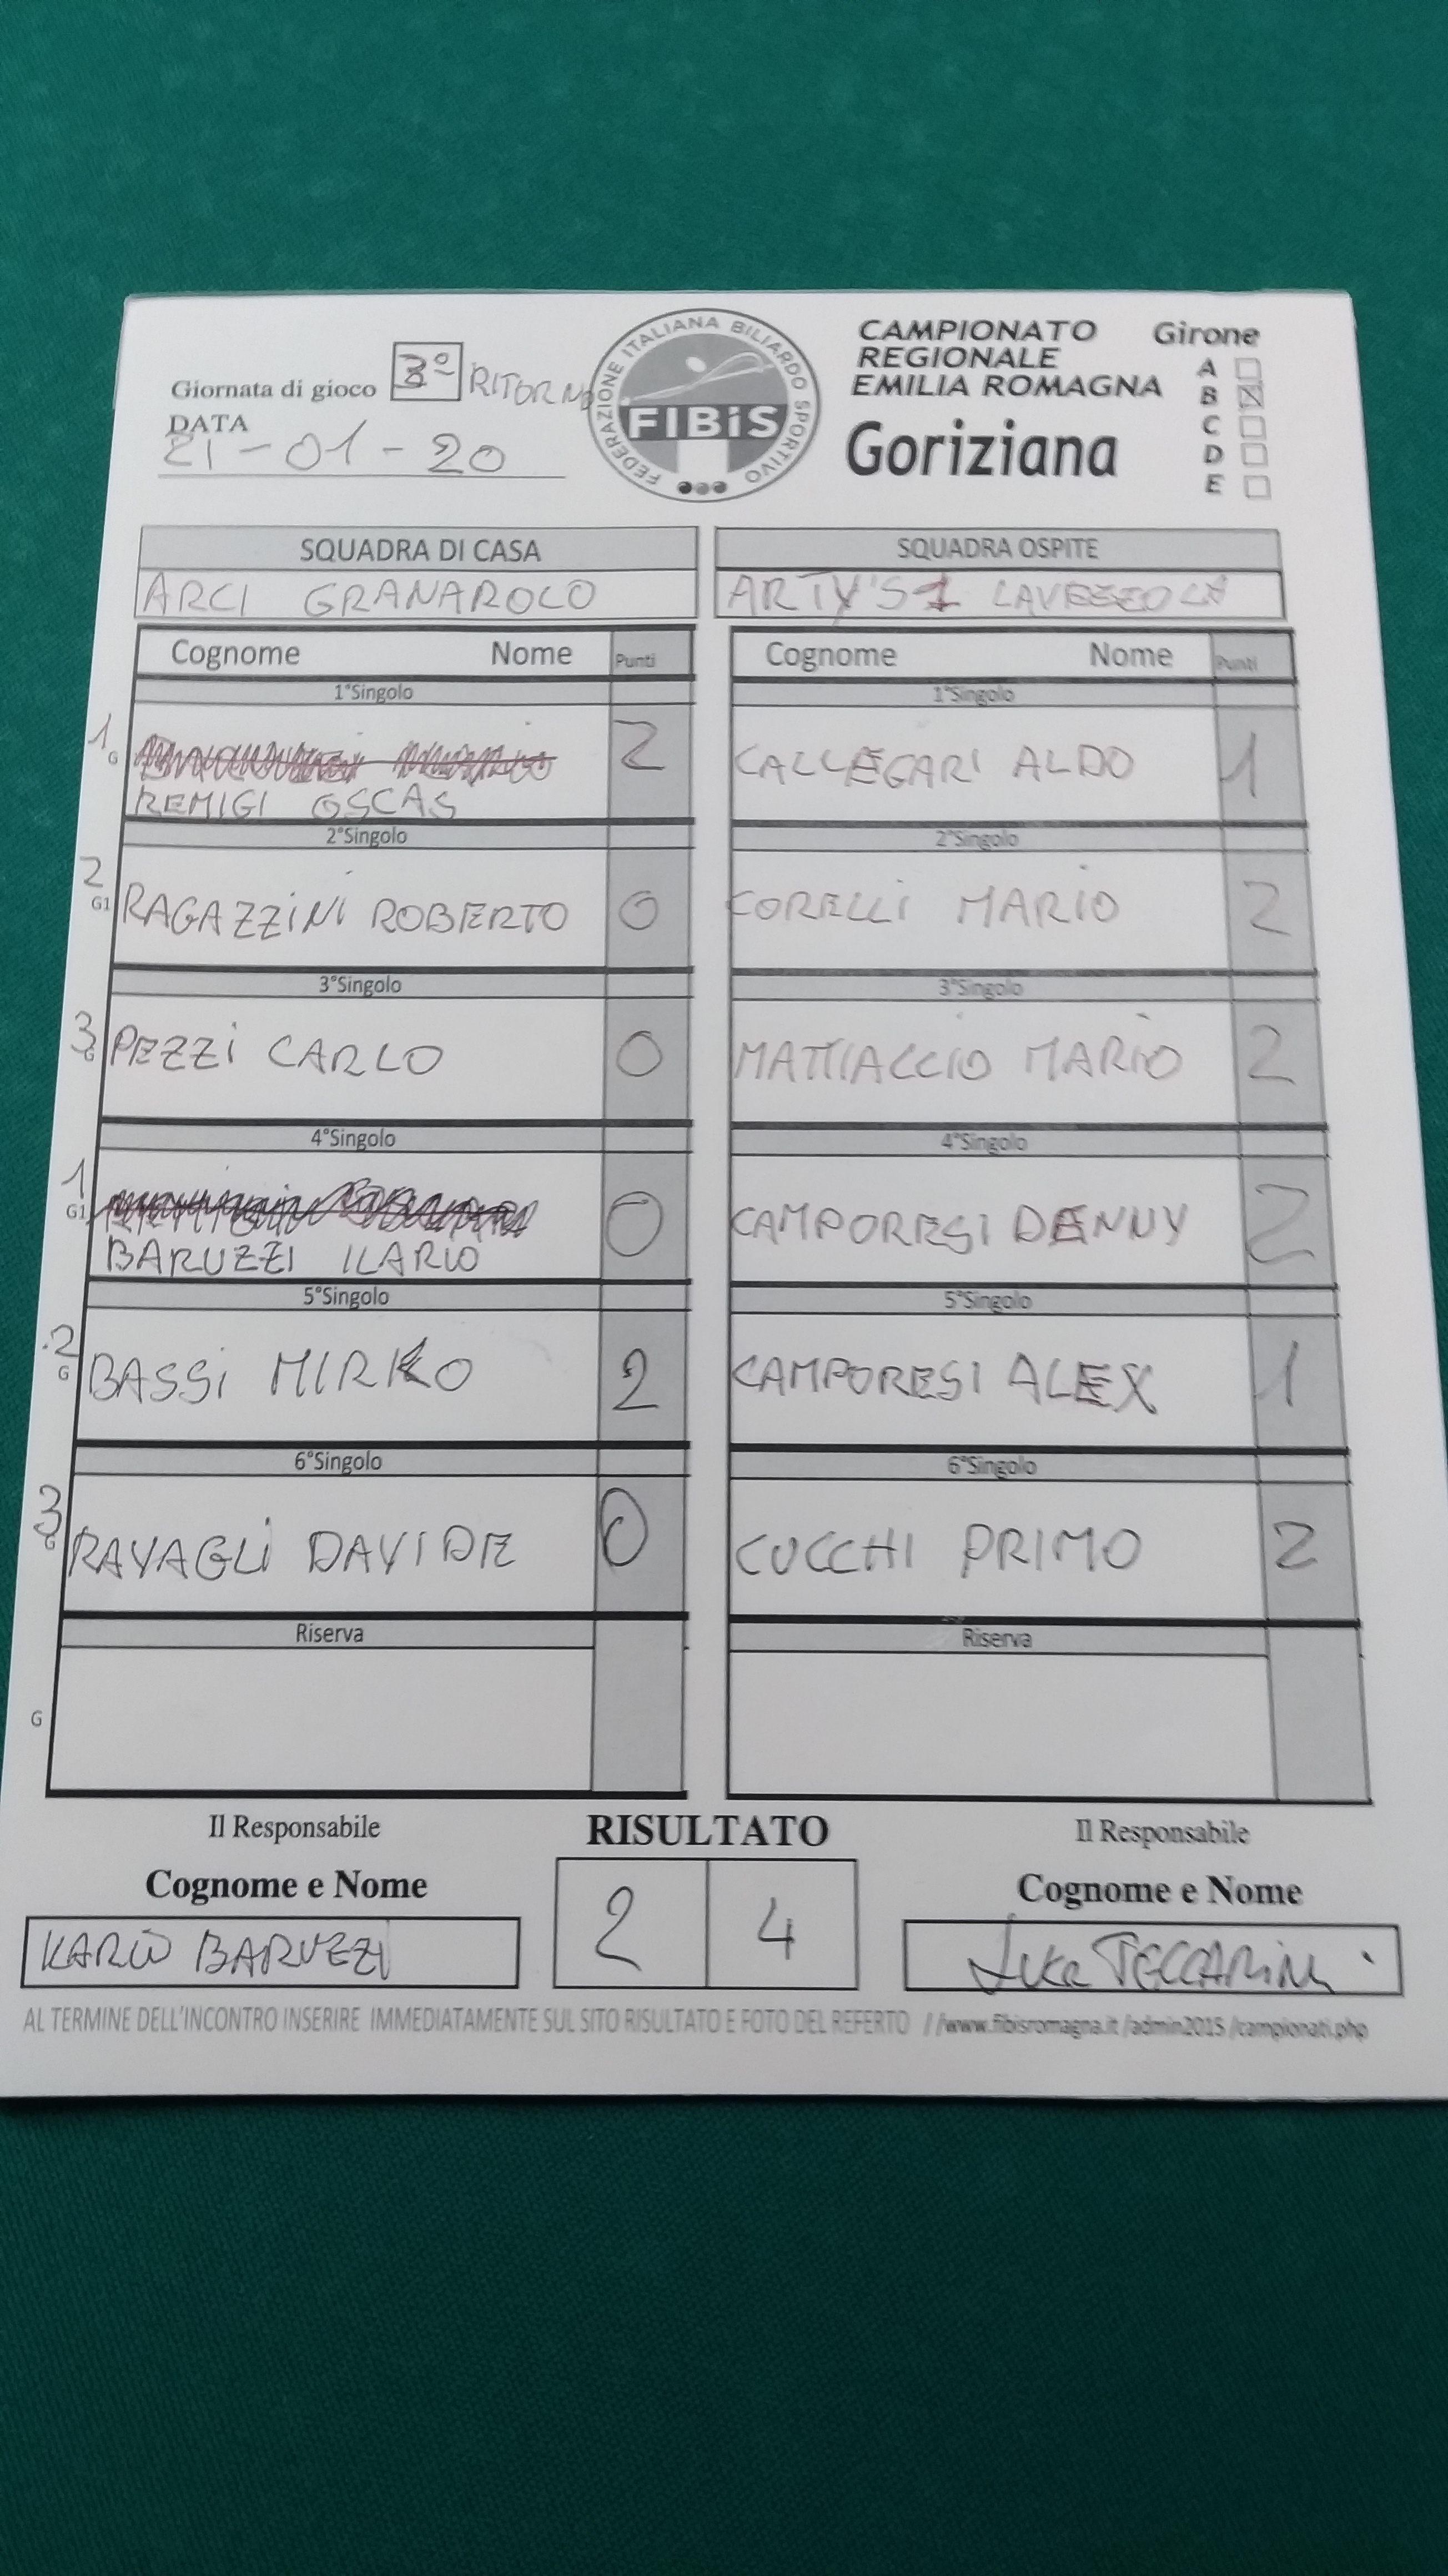 Giornata di gioco 3° RITORNO
DATA
21-01-20
FEDERAZIONE ITALIANA BILIARDO SPORTIVO
FIBiS
CAMPIONATO
REGIONALE
EMILIA ROMAGNA
Goriziana
Girone
A
B
C
D
E
SQUADRA DI CASA
ARCI GRANAROLO
SQUADRA OSPITE
ARTY'S1 LAVEZZOLA
Cognome Nome Punti
Cognome Nome Punti
1°Singolo
1°Singolo
1
G
REMIGI OSCAS
2
CALLEGARI ALDO 1
2°Singolo
2°Singolo
2
G1
RAGAZZINI ROBERTO 0
CORELLI MARIO 2
3°Singolo
3°Singolo
3
G
PEZZI CARLO 0
MATTIACCIO MARIO 2
4°Singolo
4°Singolo
1
G1
BARUZZI ILARIO
0
CAMPORESI DENNY 2
5°Singolo
5°Singolo
2
G
BASSI MIRKO 2
CAMPORESI ALEX 1
6°Singolo
6°Singolo
3
G
RAVAGLI DAVIDE 0
CUCCHI PRIMO 2
Riserva
Riserva
G
Il Responsabile
Cognome e Nome
BARUZZI
RISULTATO
2 4
Il Responsabile
Cognome e Nome
Luca TECCARINI
AL TERMINE DELL'INCONTRO INSERIRE IMMEDIATAMENTE SUL SITO RISULTATO E FOTO DEL REFERTO //www.fibisromagna.it /admin2015 /campionati.php